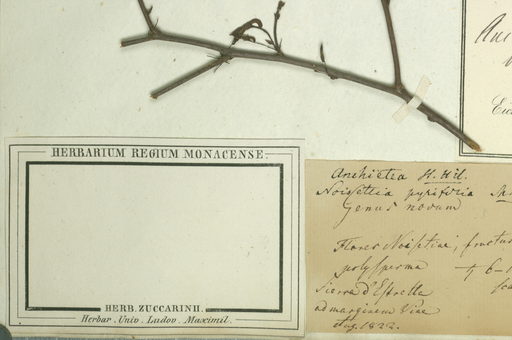 HERBARIUM REGIUM MONACENSE.
HERB. ZUCCARINII.
Herbar. Univ. Ludov. Maximil.
Anchietea St. Hil.
Noisettia pyrifolia
Genus novum
Flores Noisettiae, fructus
polysperma
Sierra d'Estrella
ad marginem Viae
Aug. 1822.